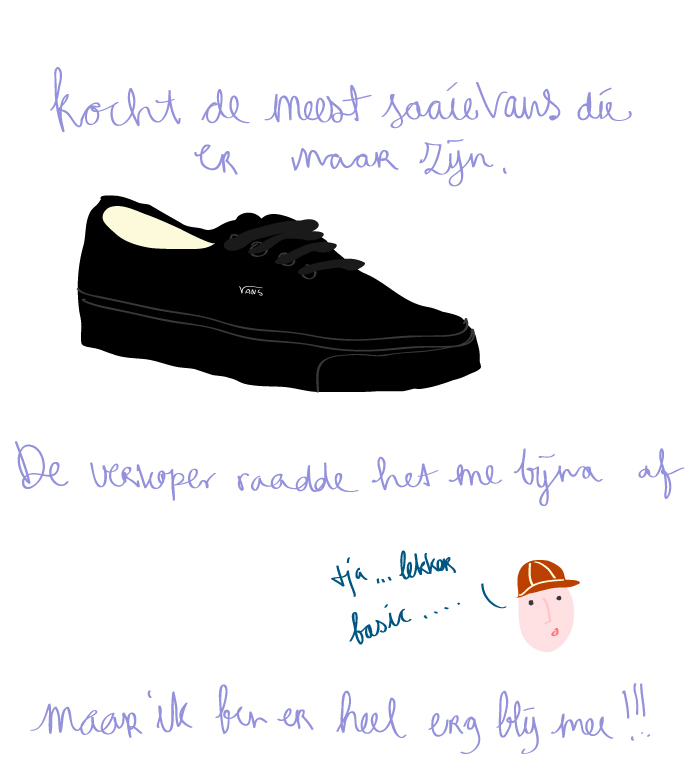 kocht de meest saaie Vans die
er maar zijn.
VANS
De verkoper raadde het me bijna af
tja ... lekker
basic ....
maar ik ben er heel erg blij mee !!!